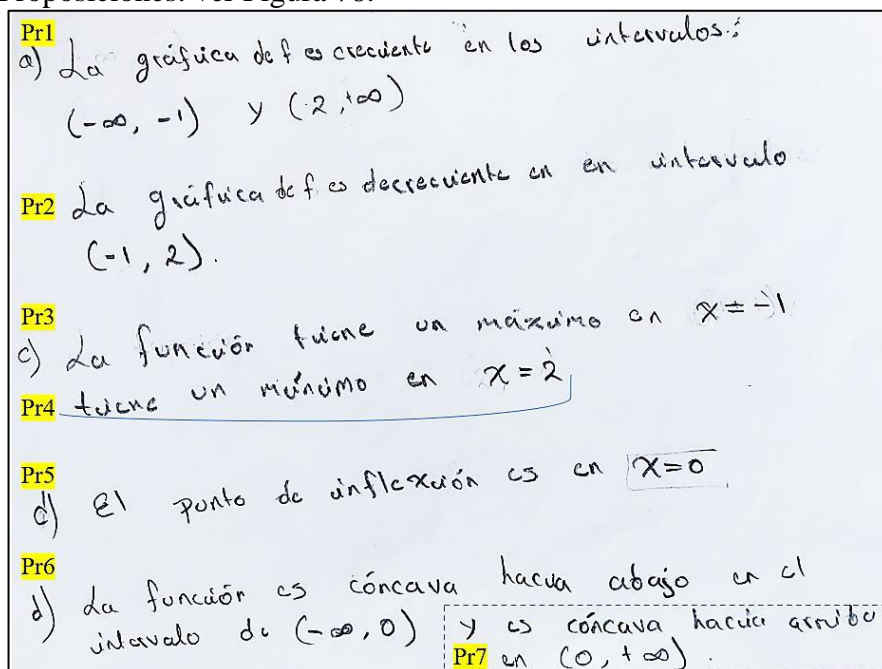 Proposiciones. Ver Figura 78.
Pr1
a) La gráfica de f es creciente en los intervalos:
(-∞, -1) y (2, +∞)
Pr2 La gráfica de f es decreciente en en intervalo
(-1, 2).
Pr3
c) La función tiene un máximo en x = -1
Pr4 tiene un mínimo en x = 2
Pr5
d) El punto de inflexión es en x=0
Pr6
d) La función es cóncava hacia abajo en el
intervalo de (-∞, 0) y es cóncava hacia arriba
Pr7 en (0, +∞).